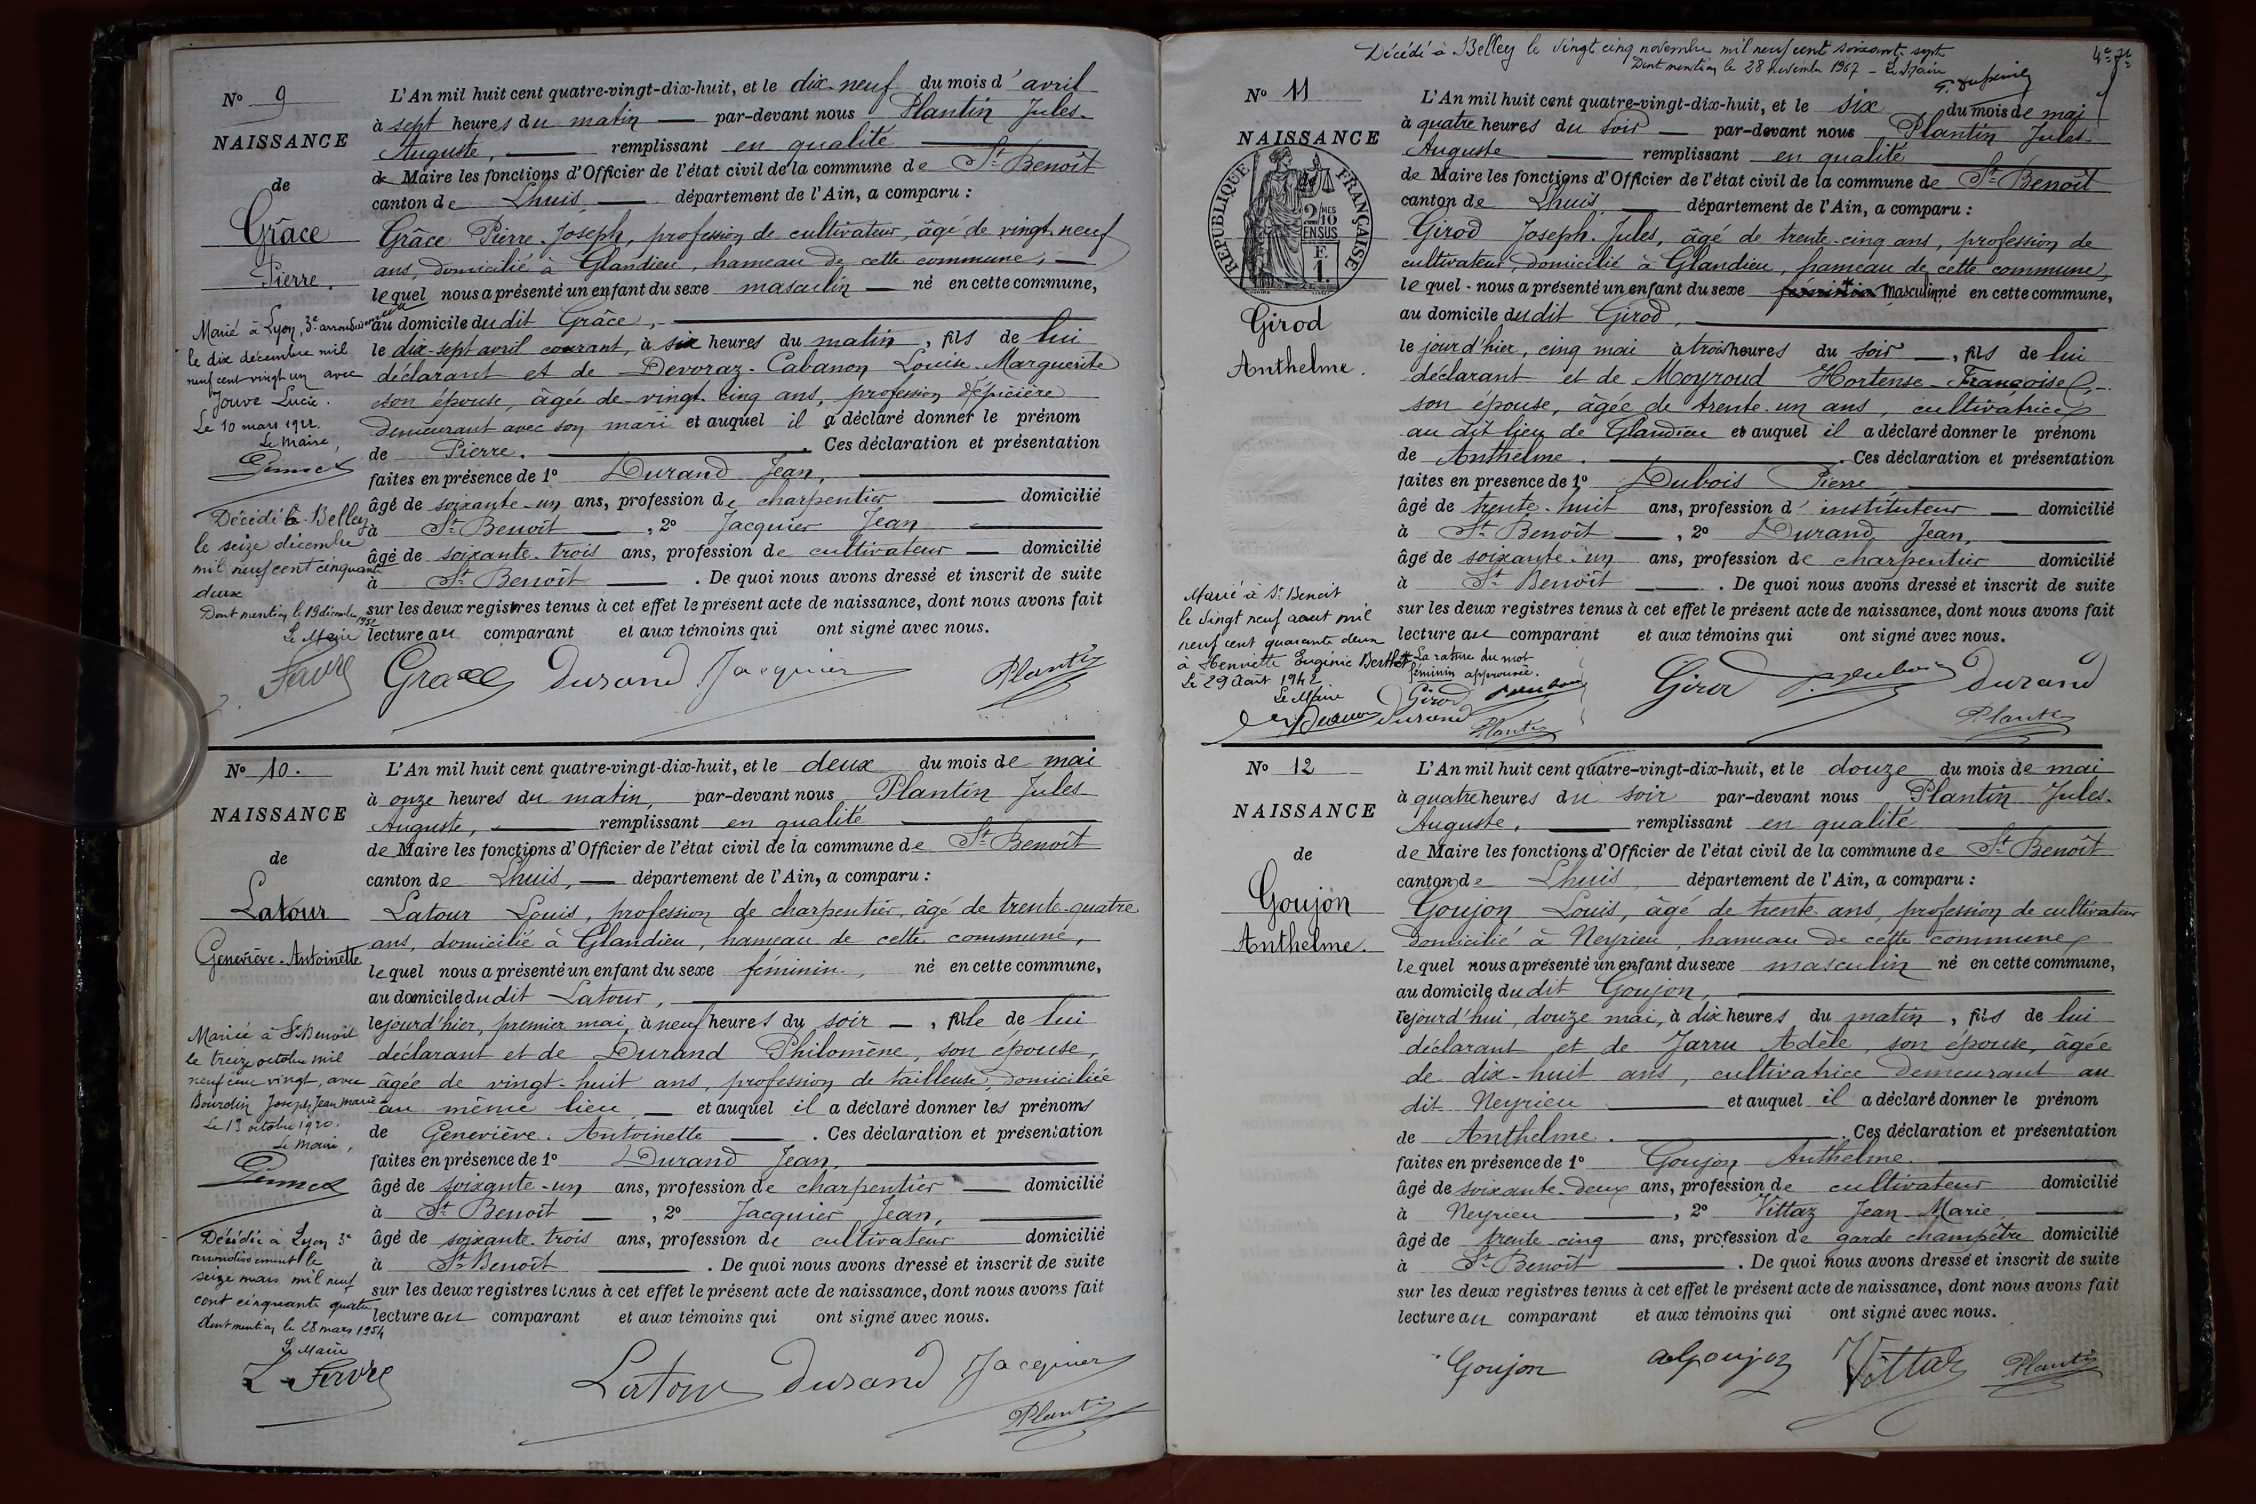 N° 9
NAISSANCE
de
Grâce
Pierre.
Marié à Lyon, 3e arrondissement
le dix décembre mil
neuf cent vingt un avec
Jouve Lucie.
Le 10 mars 1922.
Le Maire,
Décédé à Belley
le seize décembre
mil neuf cent cinquante
deux
Dont mention le 19 décembre 1952
Le Maire
Favre
L'An mil huit cent quatre-vingt-dix-huit, et le dix-neuf du mois d'avril
à sept heures du matin — par-devant nous Plantin Jules-
Auguste, — remplissant en qualité
de Maire les fonctions d'Officier de l'état civil de la commune de St Benoît
canton de Lhuis — département de l'Ain, a comparu :
Grâce Pierre-Joseph, profession de cultivateur, âgé de vingt-neuf
ans, domicilié à Glandieu, hameau de cette commune, —
lequel nous a présenté un enfant du sexe masculin — né en cette commune,
au domicile dudit Grâce, —
le dix-sept avril courant, à six heures du matin, fils de lui
déclarant et de Devoraz-Cabanon Louise-Marguerite
son épouse, âgée de vingt-cinq ans, profession d'épicière
demeurant avec son mari et auquel il a déclaré donner le prénom
de Pierre. — Ces déclaration et présentation
faites en présence de 1° Durand Jean, —
âgé de soixante-un ans, profession de charpentier — domicilié
à St Benoît —, 2° Jacquier Jean
âgé de soixante-trois ans, profession de cultivateur — domicilié
à St Benoît — . De quoi nous avons dressé et inscrit de suite
sur les deux registres tenus à cet effet le présent acte de naissance, dont nous avons fait
lecture au comparant et aux témoins qui ont signé avec nous.
Grâce Durand Jacquier Plantin
N° 10.
NAISSANCE
de
Latour
Geneviève-Antoinette
Mariée à St Benoît
le treize octobre mil
neuf cent vingt, avec
Bourdin Joseph Jean Marie
Le 13 octobre 1920.
Le Maire,
Décédée à Lyon 3e
arrondissement le
seize mars mil neuf
cent cinquante quatre
dont mention le 28 mars 1954
Le Maire
L Favre
L'An mil huit cent quatre-vingt-dix-huit, et le deux du mois de mai
à onze heures du matin, par-devant nous Plantin Jules
Auguste, — remplissant en qualité
de Maire les fonctions d'Officier de l'état civil de la commune de St Benoît
canton de Lhuis, — département de l'Ain, a comparu :
Latour Louis, profession de charpentier, âgé de trente-quatre
ans, domicilié à Glandieu, hameau de cette commune,
lequel nous a présenté un enfant du sexe féminin, né en cette commune,
au domicile dudit Latour, —
le jourd'hier, premier mai, à neuf heures du soir —, fille de lui
déclarant et de Durand Philomène, son épouse,
âgée de vingt-huit ans, profession de tailleuse, domiciliée
au même lieu, — et auquel il a déclaré donner les prénoms
de Geneviève-Antoinette — . Ces déclaration et présentation
faites en présence de 1° Durand Jean, —
âgé de soixante-un ans, profession de charpentier — domicilié
à St Benoît —, 2° Jacquier Jean, —
âgé de soixante-trois ans, profession de cultivateur domicilié
à St Benoît — . De quoi nous avons dressé et inscrit de suite
sur les deux registres tenus à cet effet le présent acte de naissance, dont nous avons fait
lecture au comparant et aux témoins qui ont signé avec nous.
Latour Durand Jacquier
Plantin
Décédé à Belley le vingt cinq novembre mil neuf cent soixante sept
Dont mention le 28 novembre 1967 - Le Maire
N° 11
NAISSANCE
RÉPUBLIQUE FRANÇAISE
2/10MES
EN SUS
F.
1
Girod
Anthelme.
Marié à St Benoit
le vingt neuf aout mil
neuf cent quarante deux
à Henriette Eugénie Berthet
Le 29 Août 1942
Le Maire
L'An mil huit cent quatre-vingt-dix-huit, et le six du mois de mai
à quatre heures du soir — par-devant nous Plantin Jules-
Auguste — remplissant en qualité
de Maire les fonctions d'Officier de l'état civil de la commune de St Benoît
canton de Lhuis — département de l'Ain, a comparu :
Girod Joseph-Jules, âgé de trente-cinq ans, profession de
cultivateur, domicilié à Glandieu, hameau de cette commune,
lequel nous a présenté un enfant du sexe féminin masculin né en cette commune,
au domicile dudit Girod, —
le jourd'hier, cinq mai à trois heures du soir —, fils de lui
déclarant et de Moyroud Hortense-Françoise,
son épouse, âgée de trente-un ans, cultivatrice
au dit lieu de Glandieu et auquel il a déclaré donner le prénom
de Anthelme. — Ces déclaration et présentation
faites en présence de 1° Dubois Pierre
âgé de trente-huit ans, profession d'instituteur — domicilié
à St Benoît —, 2° Durand Jean,
âgé de soixante-un ans, profession de charpentier domicilié
à St Benoît — . De quoi nous avons dressé et inscrit de suite
sur les deux registres tenus à cet effet le présent acte de naissance, dont nous avons fait
lecture au comparant et aux témoins qui ont signé avec nous.
La rature du mot
féminin approuvée.
Girod Dubois
Durand Plantin
Girod Dubois Durand
Plantin
N° 12
NAISSANCE
de
Goujon
Anthelme.
L'An mil huit cent quatre-vingt-dix-huit, et le douze du mois de mai
à quatre heures du soir par-devant nous Plantin Jules-
Auguste, — remplissant en qualité
de Maire les fonctions d'Officier de l'état civil de la commune de St Benoît
canton de Lhuis département de l'Ain, a comparu :
Goujon Louis, âgé de trente ans, profession de cultivateur
domicilié à Neyrieu, hameau de cette commune
lequel nous a présenté un enfant du sexe masculin né en cette commune,
au domicile dudit Goujon, —
le jourd'hui, douze mai, à dix heures du matin, fils de lui
déclarant et de Jarru Adèle, son épouse, âgée
de dix-huit ans, cultivatrice demeurant au
dit Neyrieu — et auquel il a déclaré donner le prénom
de Anthelme. — Ces déclaration et présentation
faites en présence de 1° Goujon Anthelme
âgé de soixante-deux ans, profession de cultivateur domicilié
à Neyrieu —, 2° Vittaz Jean-Marie
âgé de trente-cinq ans, profession de garde champêtre domicilié
à St Benoît — . De quoi nous avons dressé et inscrit de suite
sur les deux registres tenus à cet effet le présent acte de naissance, dont nous avons fait
lecture au comparant et aux témoins qui ont signé avec nous.
Goujon A Goujon Vittaz Plantin